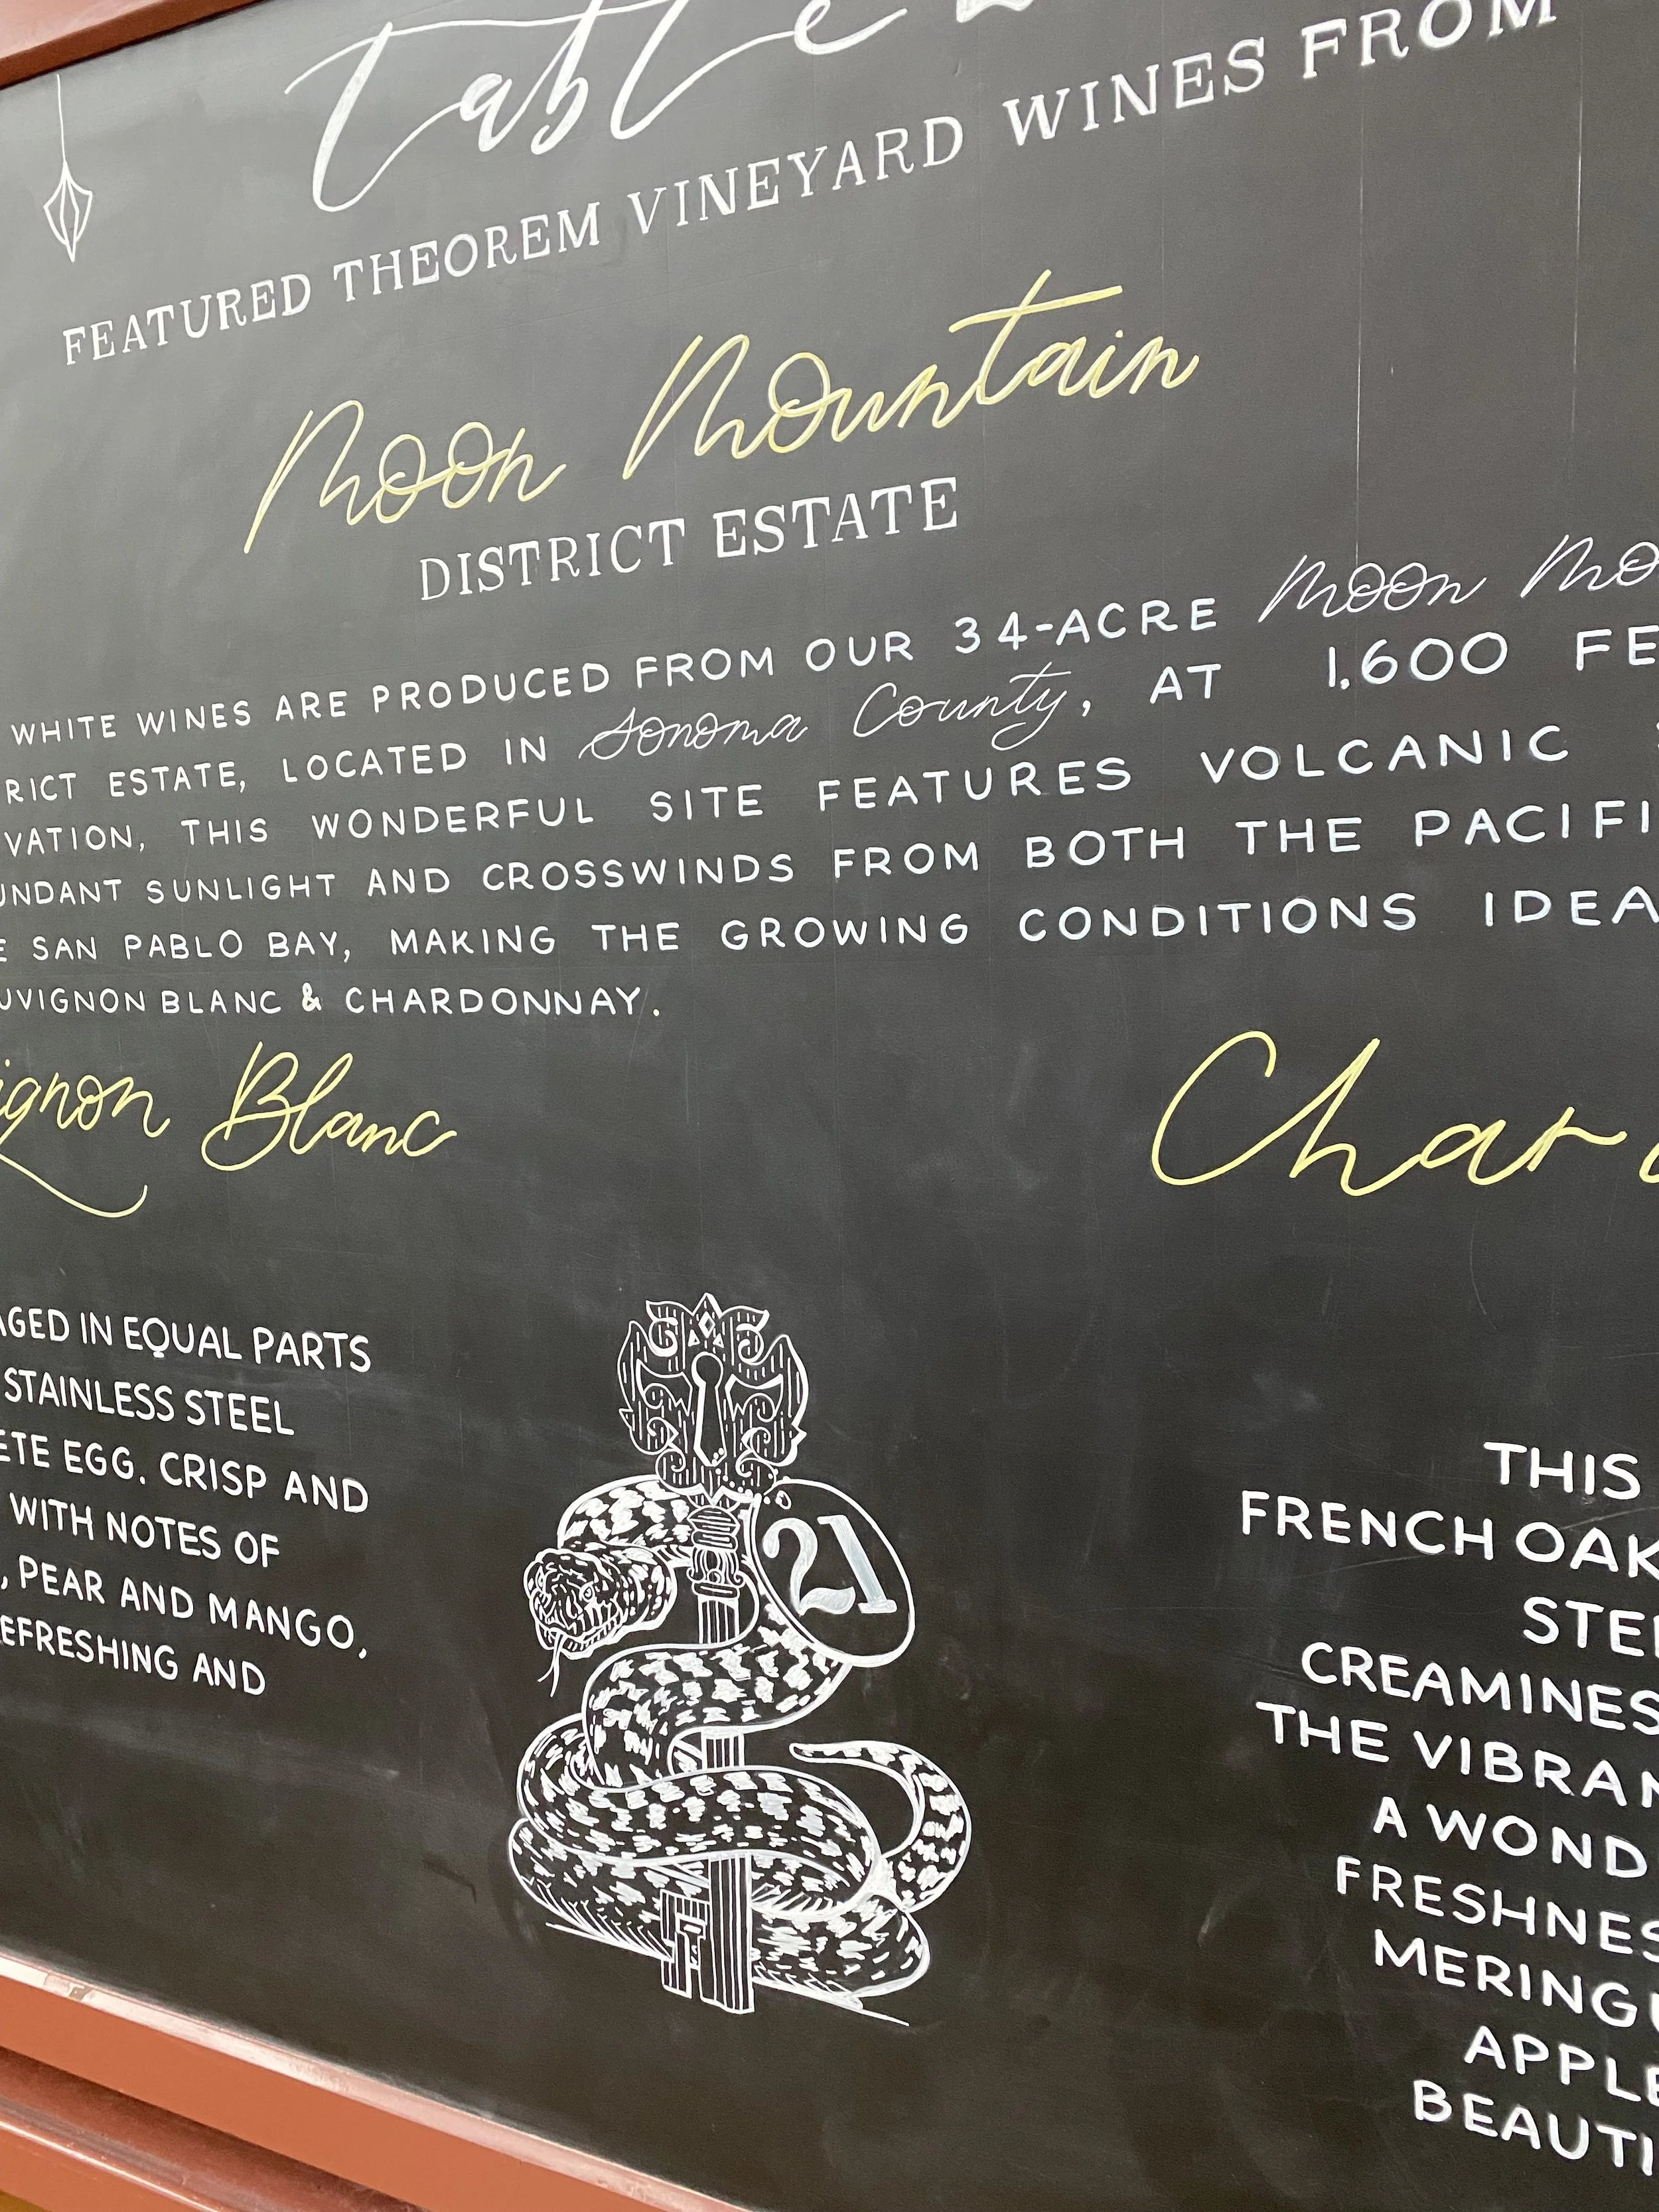 table
FEATURED THEOREM VINEYARD WINES FROM
Moon Mountain
DISTRICT ESTATE
WHITE WINES ARE PRODUCED FROM OUR 34-ACRE Moon Mo
RICT ESTATE, LOCATED IN Sonoma County, AT 1,600 FE
VATION, THIS WONDERFUL SITE FEATURES VOLCANIC
UNDANT SUNLIGHT AND CROSSWINDS FROM BOTH THE PACIFI
E SAN PABLO BAY, MAKING THE GROWING CONDITIONS IDEA
UVIGNON BLANC & CHARDONNAY.
ignon Blanc
AGED IN EQUAL PARTS
STAINLESS STEEL
ETE EGG. CRISP AND
WITH NOTES OF
, PEAR AND MANGO,
EFRESHING AND
21
Chard
THIS
FRENCH OAK
STEE
CREAMINES
THE VIBRAN
A WOND
FRESHNES
MERINGU
APPLE
BEAUTI